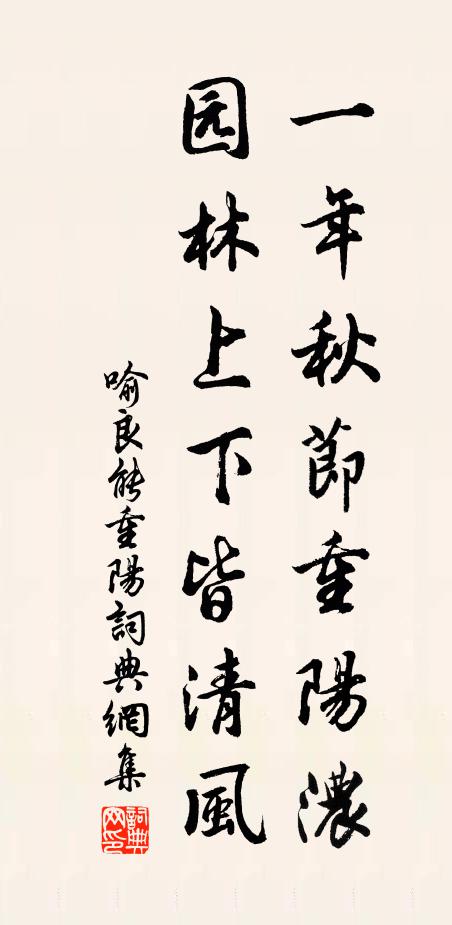 一年秋節重陽濃
园林上下皆清風
喻良能重陽詞典網集
詞典网印